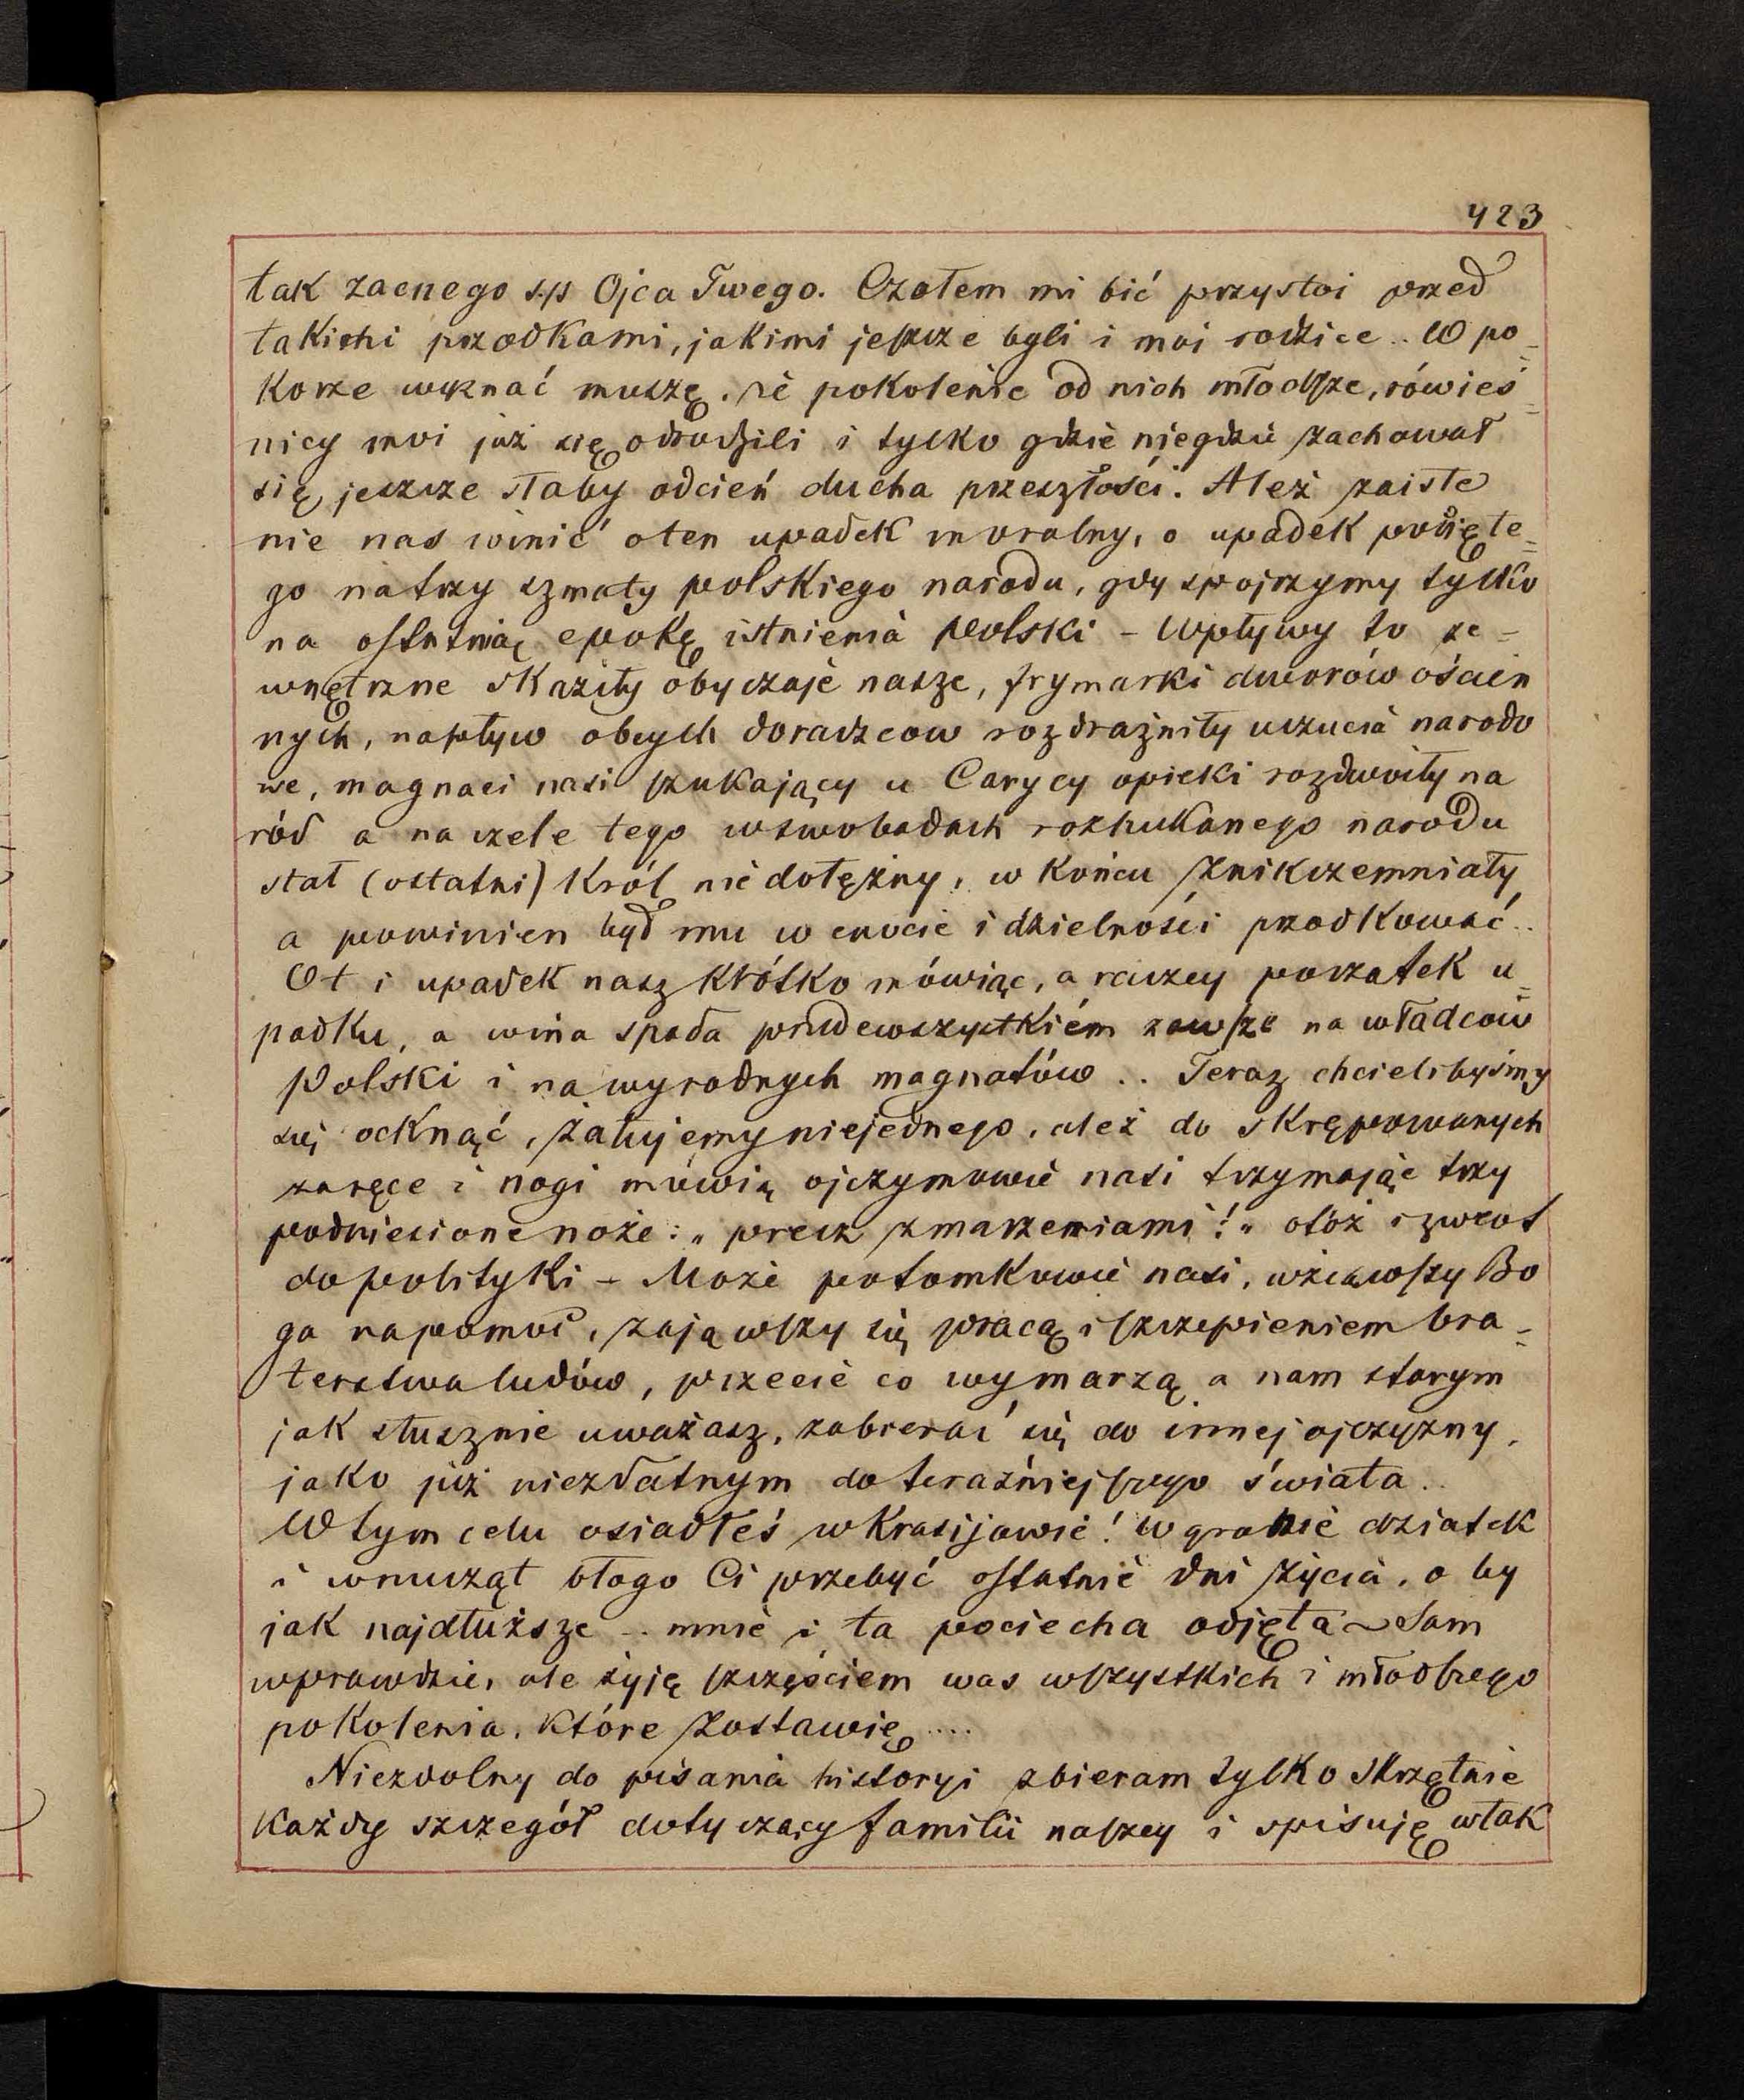 423
tak zacnego s.p Ojca Twego. Czołem mi bić przystoi przed
takiemi przodkami, jakimi jeszcze byli i moi rodzice.. W po=
korze wyznać muszę, że pokolenie od nich młodsze, rówieś=
nicy moi już się odrodzili i tylko gdzie niegdzie zachował
się, jeszcze słaby odcień ducha przeszłości. Ależ zaiste
nie nas winić o ten upadek moralny, o upadek pocięte=
go na trzy szmaty polskiego narodu, gdy spojrzymy tylko
na ostatnią epokę istnienia Polski – Wpływy to ze-
wnętrzne skaziły obyczaje nasze, frymarki dworów ościen
nych, napływ obcych doradzcow rozdrażniły uczucia narodo
we, magnaci nasi szukający u Carycy opieki rozdwoiły na
ród a na czele tego w swobodach rozhukanego narodu
stał (ostatni) Król niedołężny, w końcu znikczemniały
a powinien był mu w cnocie i dzielności przodkować..
Ot i upadek nasz krótko mówiąc, a raczey początek u=
padku, a wina spada przedewszystkiém zawsze na władców
Polski i na wyrodnych magnatów .. Teraz chcielibyśmy
się ocknąć, żałujemy niejednego, ależ do skrępowanych
za ręce i nogi mówią ojczymowie nasi trzymając trzy
podniesione noże: „precz z marzeniami!„ otóż i zwrot
do polityki – Może potomkowie nasi, wziąwszy Bo
ga na pomoc, zająwszy się pracą i szczepieniem bra=
terstwa ludów, przecie co wymarzą a nam starym
jak słusznie uważasz, zabierać się do innej ojczyzny,
jako już niezdatnym do teraźniejszego świata..
W tym celu osiadłeś w Krasijowie! W gronie dziatek
i wnucząt błogo Ci przebyć ostatnie dni życia, o by
jak najdłuższe .. mnie i ta pociecha odjęta ~ Sam
wprawdzie, ale żyję szczęściem was wszystkich i młodszego
pokolenia, które zostawię ....
Niezdolny do pisania historyi zbieram tylko skrzętnie
każdy szczegół dotyczący familii naszey i spisuję w tak